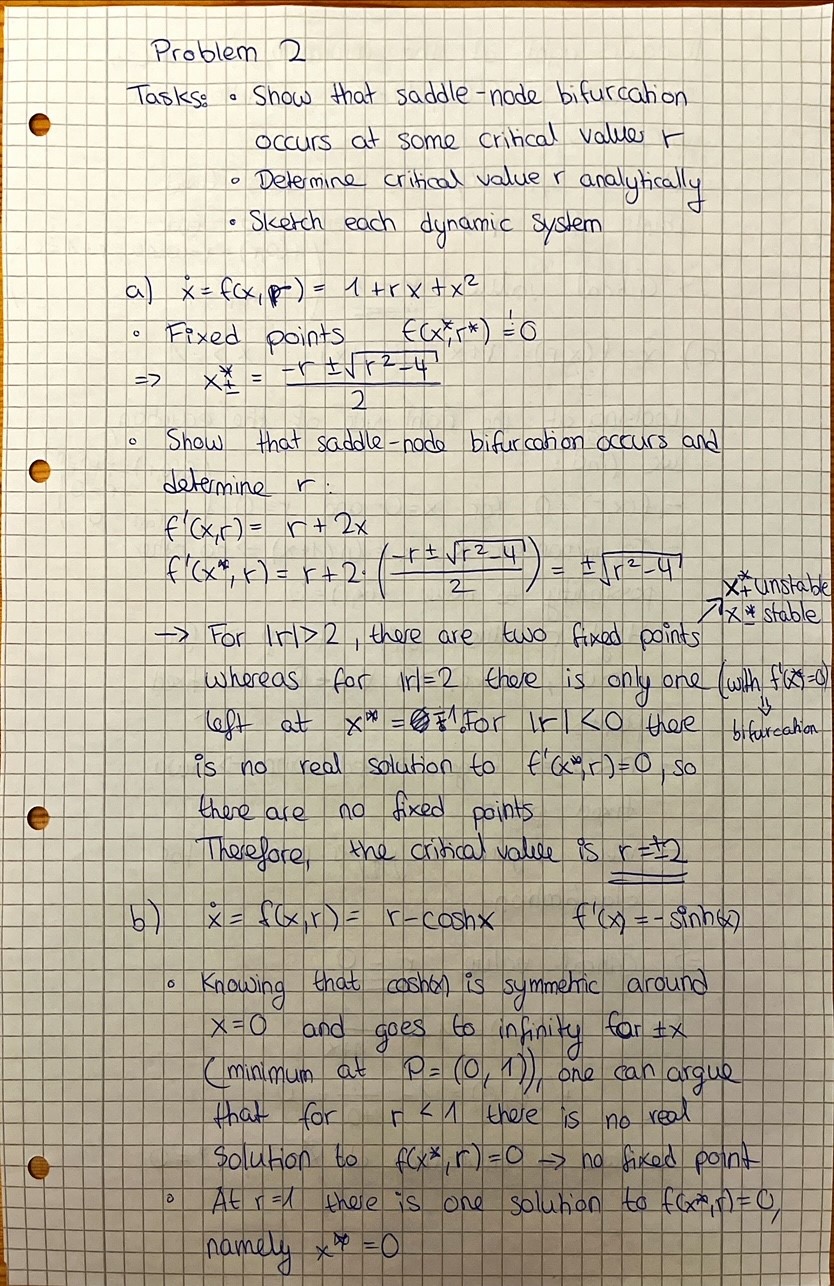 Problem 2
Tasks: • Show that saddle-node bifurcation
occurs at some critical value r
• Determine critical value r analytically
• Sketch each dynamic system
a) ẋ = f(x, r) = 1 + r x + x²
• Fixed points f(x*, r*) != 0
=> x*± = (-r ± √(r² - 4)) / 2
• Show that saddle-node bifurcation occurs and
determine r:
f'(x,r) = r + 2x
f'(x*, r) = r + 2 · ((-r ± √(r² - 4)) / 2) = ± √(r² - 4)
x*+ unstable
x*- stable
-> For |r| > 2, there are two fixed points
whereas for |r| = 2 there is only one (with f'(x*) = 0)
left at x* = ∓1. For |r| < 0 there
⇓
bifurcation
is no real solution to f'(x*, r) = 0, so
there are no fixed points
Therefore, the critical value is r = ±2
b) ẋ = f(x, r) = r - cosh x f'(x) = - sinh(x)
• Knowing that cosh(x) is symmetric around
x = 0 and goes to infinity for ±x
(minimum at P = (0, 1)), one can argue
that for r < 1 there is no real
solution to f(x*, r) = 0 -> no fixed point
• At r = 1 there is one solution to f(x*, r) = 0,
namely x* = 0